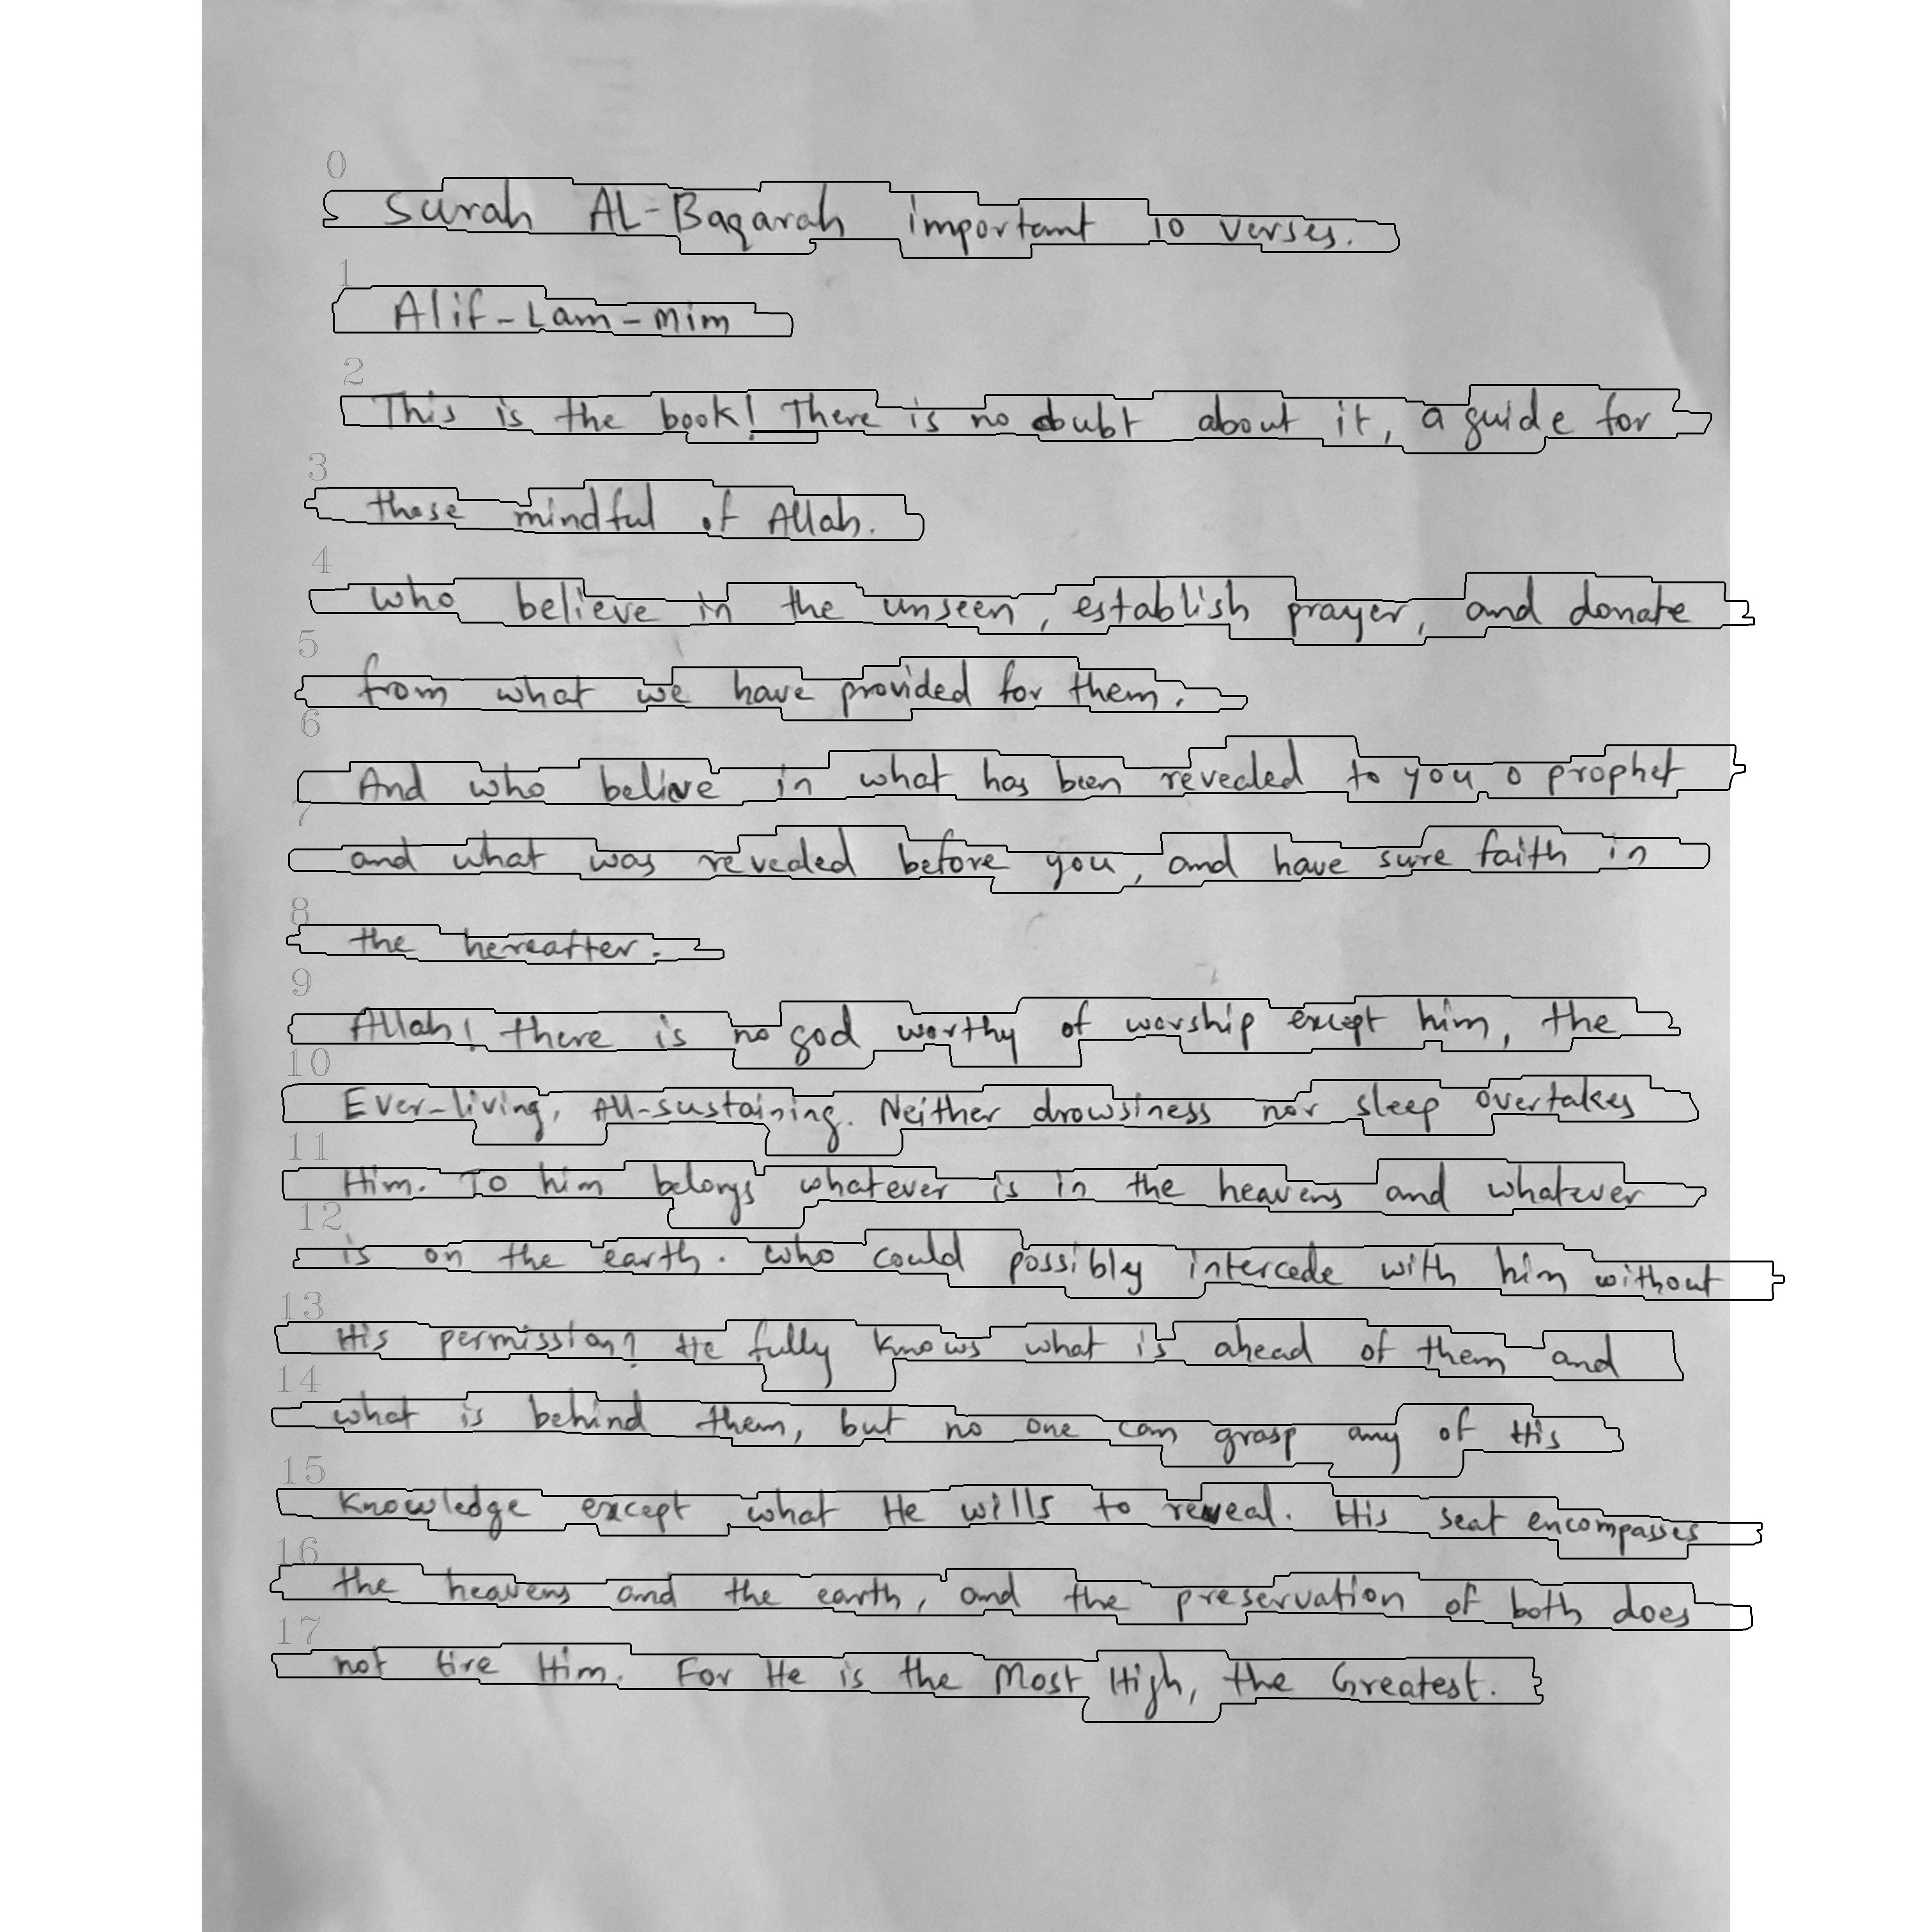 0
Surah AL-Baqarah important 10 verses.
1
Alif-Lam-mim
2
This is the book! There is no doubt about it, a guide for
3
those mindful of Allah.
4
who believe in the unseen, establish prayer, and donate
5
from what we have provided for them.
6
And who believe in what has been revealed to you o prophet
7
and what was revealed before you, and have sure faith in
8
the hereafter.
9
Allah! there is no god worthy of worship except him, the
10
Ever-living, All-sustaining. Neither drowsiness nor sleep overtakes
11
Him. To him belongs whatever is in the heavens and whatever
12
is on the earth. who could possibly intercede with him without
13
His permission? He fully knows what is ahead of them and
14
what is behind them, but no one can grasp any of His
15
Knowledge except what He wills to reveal. His seat encompasses
16
the heavens and the earth, and the preservation of both does
17
not tire Him. For He is the Most High, the Greatest.